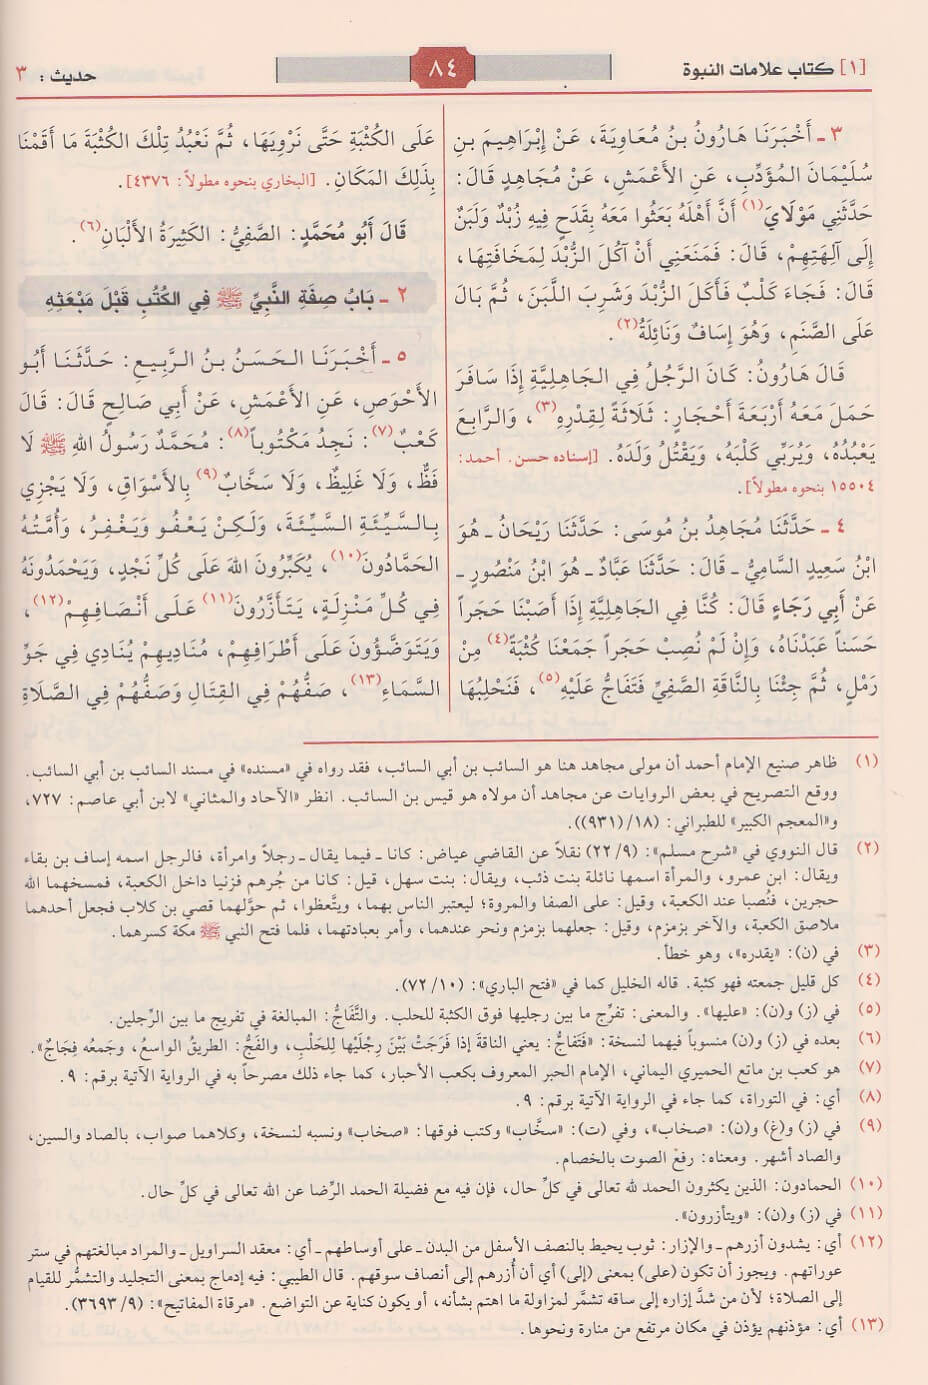 [١] كتاب علامات النبوة
٨٤
حديث : ٣
٣ ـ أَخْبَرَنَا هَارُونُ بنُ مُعَاوِيَةَ، عَنْ إِبْرَاهِيمَ بنِ
سُلَيْمَانَ المُؤَدِّبِ، عَنِ الأَعْمَشِ، عَنْ مُجَاهِدٍ قَالَ:
حَدَّثَنِي مَوْلَايَ(١) أَنَّ أَهْلَهُ بَعَثُوا مَعَهُ بِقَدَحٍ فِيهِ زُبْدٌ وَلَبَنٌ
إِلَى آلِهَتِهِمْ، قَالَ: فَمَنَعَنِي أَنْ آكُلَ الزُّبْدَ لِمَخَافَتِهَا،
قَالَ: فَجَاءَ كَلْبٌ فَأَكَلَ الزُّبْدَ وَشَرِبَ اللَّبَنَ، ثُمَّ بَالَ
عَلَى الصَّنَمِ، وَهُوَ إِسَافٌ وَنَائِلَةُ(٢).
قَالَ هَارُونُ: كَانَ الرَّجُلُ فِي الجَاهِلِيَّةِ إِذَا سَافَرَ
حَمَلَ مَعَهُ أَرْبَعَةَ أَحْجَارٍ: ثَلَاثَةً لِقِدْرِهِ(٣)، وَالرَّابِعَ
يَعْبُدُهُ، وَيُرَبِّي كَلْبَهُ، وَيَقْتُلُ وَلَدَهُ. [إسناده حسن. أحمد:
١٥٥٠٤ بنحوه مطولاً].
٤ ـ حَدَّثَنَا مُجَاهِدُ بنُ مُوسَى: حَدَّثَنَا رَيْحَانُ ـ هُوَ
ابْنُ سَعِيدٍ السَّامِيُّ ـ قَالَ: حَدَّثَنَا عَبَّادٌ ـ هُوَ ابْنُ مَنْصُورٍ ـ
عَنْ أَبِي رَجَاءٍ قَالَ: كُنَّا فِي الجَاهِلِيَّةِ إِذَا أَصَبْنَا حَجَراً
حَسَناً عَبَدْنَاهُ، وَإِنْ لَمْ نُصِبْ حَجَراً جَمَعْنَا كُثْبَةً(٤) مِنْ
رَمْلٍ، ثُمَّ جِئْنَا بِالنَّاقَةِ الصَّفِيِّ فَتَفَاجُّ عَلَيْهِ(٥)، فَنَحْلِبُهَا
عَلَى الكُثْبَةِ حَتَّى نَرْوِيَهَا، ثُمَّ نَعْبُدُ تِلْكَ الكُثْبَةَ مَا أَقَمْنَا
بِذَلِكَ المَكَانِ. [البخاري بنحوه مطولاً: ٤٣٧٦].
قَالَ أَبُو مُحَمَّدٍ: الصَّفِيُّ: الكَثِيرَةُ الأَلْبَانِ(٦).
٢ ـ بَابُ صِفَةِ النَّبِيِّ ﷺ فِي الكُتُبِ قَبْلَ مَبْعَثِهِ
٥ ـ أَخْبَرَنَا الحَسَنُ بنُ الرَّبِيعِ: حَدَّثَنَا أَبُو
الأَحْوَصِ، عَنِ الأَعْمَشِ، عَنْ أَبِي صَالِحٍ قَالَ: قَالَ
كَعْبٌ(٧): نَجِدُ مَكْتُوباً(٨): مُحَمَّدٌ رَسُولُ اللهِ ﷺ لَا
فَظٌّ، وَلَا غَلِيظٌ، وَلَا سَخَّابٌ(٩) بِالأَسْوَاقِ، وَلَا يَجْزِي
بِالسَّيِّئَةِ السَّيِّئَةَ، وَلَكِنْ يَعْفُو وَيَغْفِرُ، وَأُمَّتُهُ
الحَمَّادُونَ(١٠)، يُكَبِّرُونَ اللهَ عَلَى كُلِّ نَجْدٍ، وَيَحْمَدُونَهُ
فِي كُلِّ مَنْزِلَةٍ، يَتَأَزَّرُونَ(١١) عَلَى أَنْصَافِهِمْ(١٢)،
وَيَتَوَضَّؤُونَ عَلَى أَطْرَافِهِمْ، مُنَادِيهِمْ يُنَادِي فِي جَوِّ
السَّمَاءِ(١٣)، صَفُّهُمْ فِي القِتَالِ وَصَفُّهُمْ فِي الصَّلَاةِ
(١) ظاهر صنيع الإمام أحمد أن مولى مجاهد هنا هو السائب بن أبي السائب، فقد رواه في «مسنده» في مسند السائب بن أبي السائب.
ووقع التصريح في بعض الروايات عن مجاهد أن مولاه هو قيس بن السائب. انظر «الآحاد والمثاني» لابن أبي عاصم: ٧٢٧،
و«المعجم الكبير» للطبراني: (١٨/(٩٣١)).
(٢) قال النووي في «شرح مسلم»: (٢٢/٩) نقلاً عن القاضي عياض: كانا ـ فيما يقال ـ رجلاً وامرأة، فالرجل اسمه إساف بن بقاء
ويقال: ابن عمرو، والمرأة اسمها نائلة بنت ذئب، ويقال: بنت سهل، قيل: كانا من جُرهم فزنيا داخل الكعبة، فمسخهما الله
حجرين، فنُصبا عند الكعبة، وقيل: على الصفا والمروة؛ ليعتبر الناس بهما، ويتَّعظوا، ثم حوَّلهما قصي بن كلاب فجعل أحدهما
ملاصق الكعبة، والآخر بزمزم، وقيل: جعلهما بزمزم ونحر عندهما، وأمر بعبادتهما، فلما فتح النبي ﷺ مكة كسرهما.
(٣) في (ن): «يقدره»، وهو خطأ.
(٤) كل قليل جمعته فهو كثبة. قاله الخليل كما في «فتح الباري»: (٧٢/١٠).
(٥) في (ز) و(ن): «عليها». والمعنى: تفرِّج ما بين رجليها فوق الكثبة للحلب. والتَّفَاجُّ: المبالغة في تفريج ما بين الرِّجلين.
(٦) بعده في (ز) و(ن) منسوباً فيهما لنسخة: «فَتَفَاجُّ: يعني الناقةَ إذا فَرَجَتْ بَيْنَ رِجْلَيْها لِلحَلْبِ، والفَجُّ: الطريقُ الواسعُ، وجَمعُه فِجَاجٌ».
(٧) هو كعب بن ماتع الحميري اليماني، الإمام الحبر المعروف بكعب الأحبار، كما جاء ذلك مصرحاً به في الرواية الآتية برقم: ٩.
(٨) أي: في التوراة، كما جاء في الرواية الآتية برقم: ٩.
(٩) في (ز) و(غ) و(ن): «صخاب»، وفي (ت): «سخَّاب» وكتب فوقها: «صخاب» ونسبه لنسخة، وكلاهما صواب، بالصاد والسين،
والصاد أشهر. ومعناه: رفعُ الصوت بالخصام.
(١٠) الحمادون: الذين يكثرون الحمد لله تعالى في كلِّ حال، فإن فيه مع فضيلة الحمد الرِّضا عن الله تعالى في كلِّ حال.
(١١) في (ز) و(ن): «ويتأزرون».
(١٢) أي: يشدون أزرهم ـ والإزار: ثوب يحيط بالنصف الأسفل من البدن ـ على أوساطهم ـ أي: معقد السراويل ـ والمراد مبالغتهم في ستر
عوراتهم. ويجوز أن تكون (على) بمعنى (إلى) أي أن أُزرهم إلى أنصاف سوقهم. قال الطيبي: فيه إدماج بمعنى التجليد والتشمُّر للقيام
إلى الصلاة؛ لأن من شدَّ إزاره إلى ساقه تشمَّر لمزاولة ما اهتم بشأنه، أو يكون كناية عن التواضع. «مرقاة المفاتيح»: (٣٦٩٣/٩).
(١٣) أي: مؤذنهم يؤذن في مكان مرتفع من منارة ونحوها.